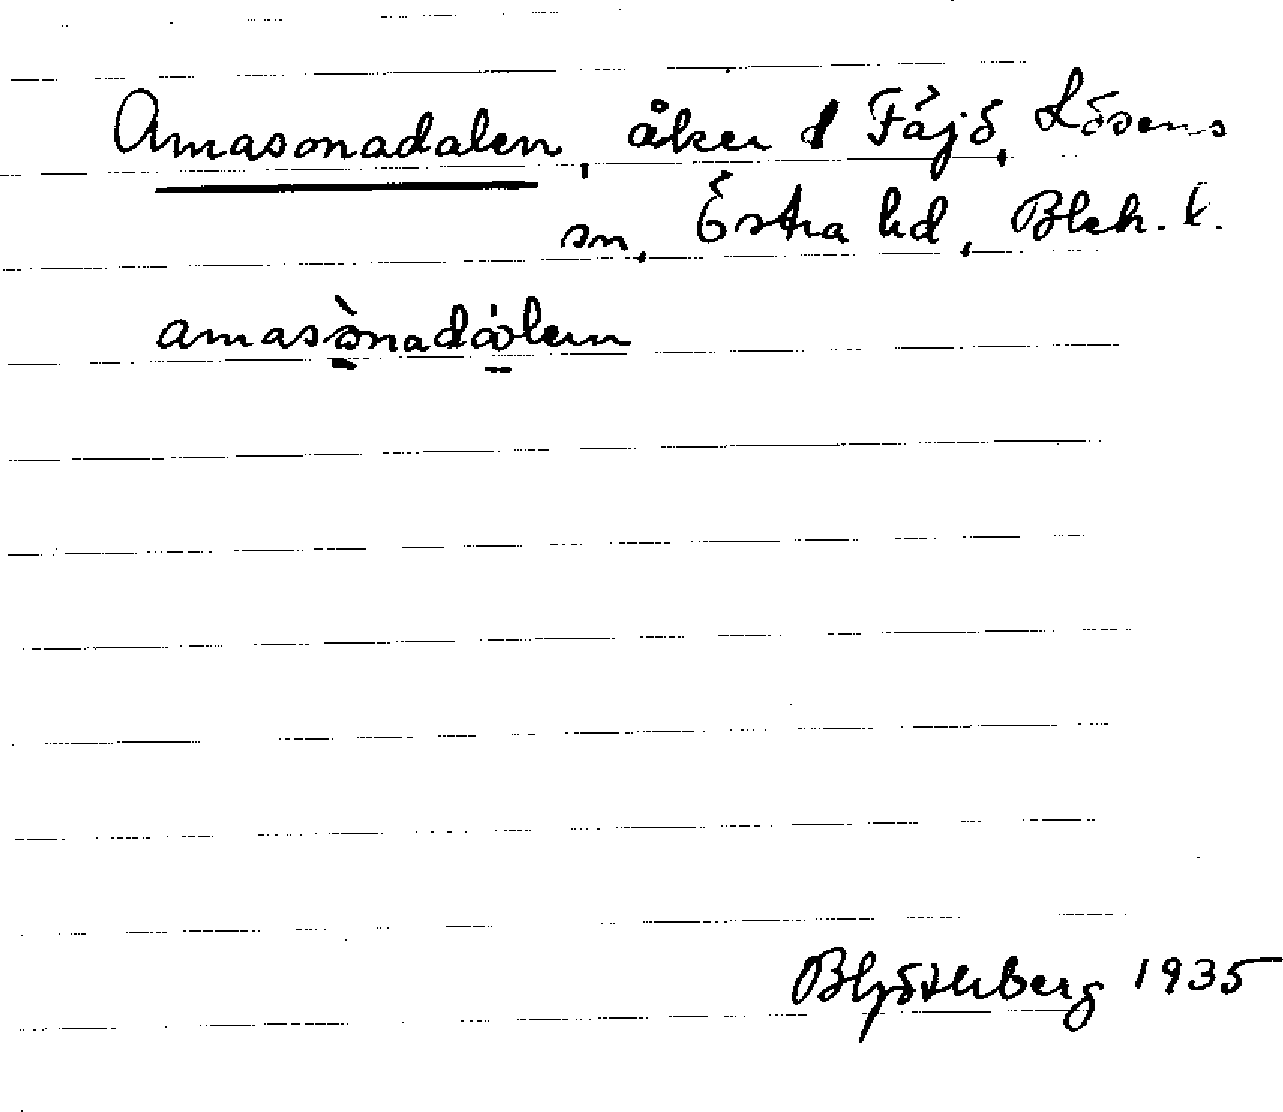 Amasonadalen, åker å Fäjö, Lösens
sn, Östra hd, Blek. l.
amasònadálen
1935